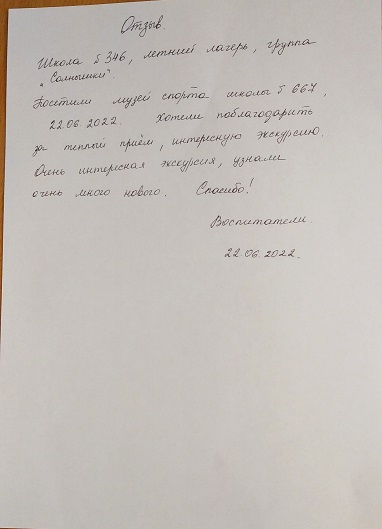 Отзыв
Школа № 346, летний лагерь, группа
„Солнышки".
Посетили музей спорта школы № 667,
22.06.2022. Хотели поблагодарить
за теплый приём, интересную экскурсию.
Очень интересная экскурсия, узнали
очень много нового. Спасибо!
Воспитатели.
22.06.2022.